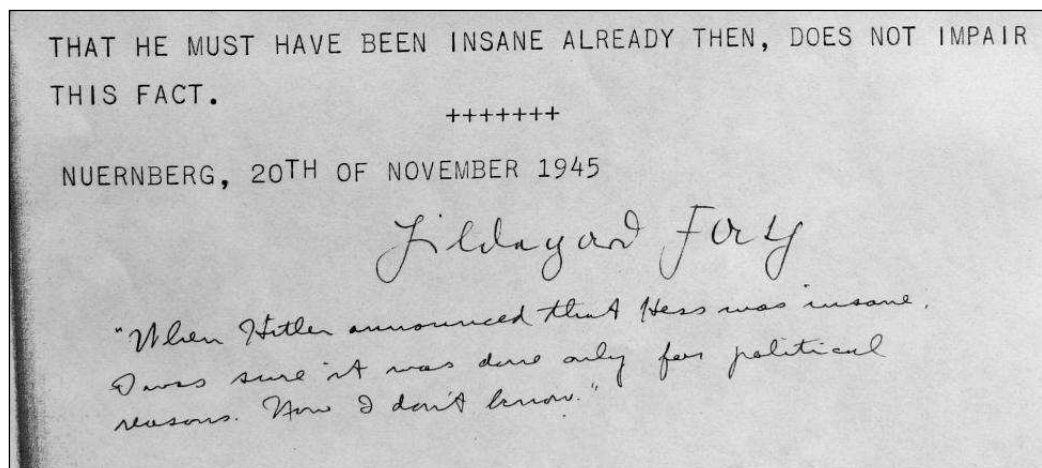 THAT HE MUST HAVE BEEN INSANE ALREADY THEN, DOES NOT IMPAIR
THIS FACT.
+++++++
NUERNBERG, 20TH OF NOVEMBER 1945
Hildegard Faty
"When Hitler announced that Hess was insane,
I was sure it was done only for political
reasons. Now I don't know."